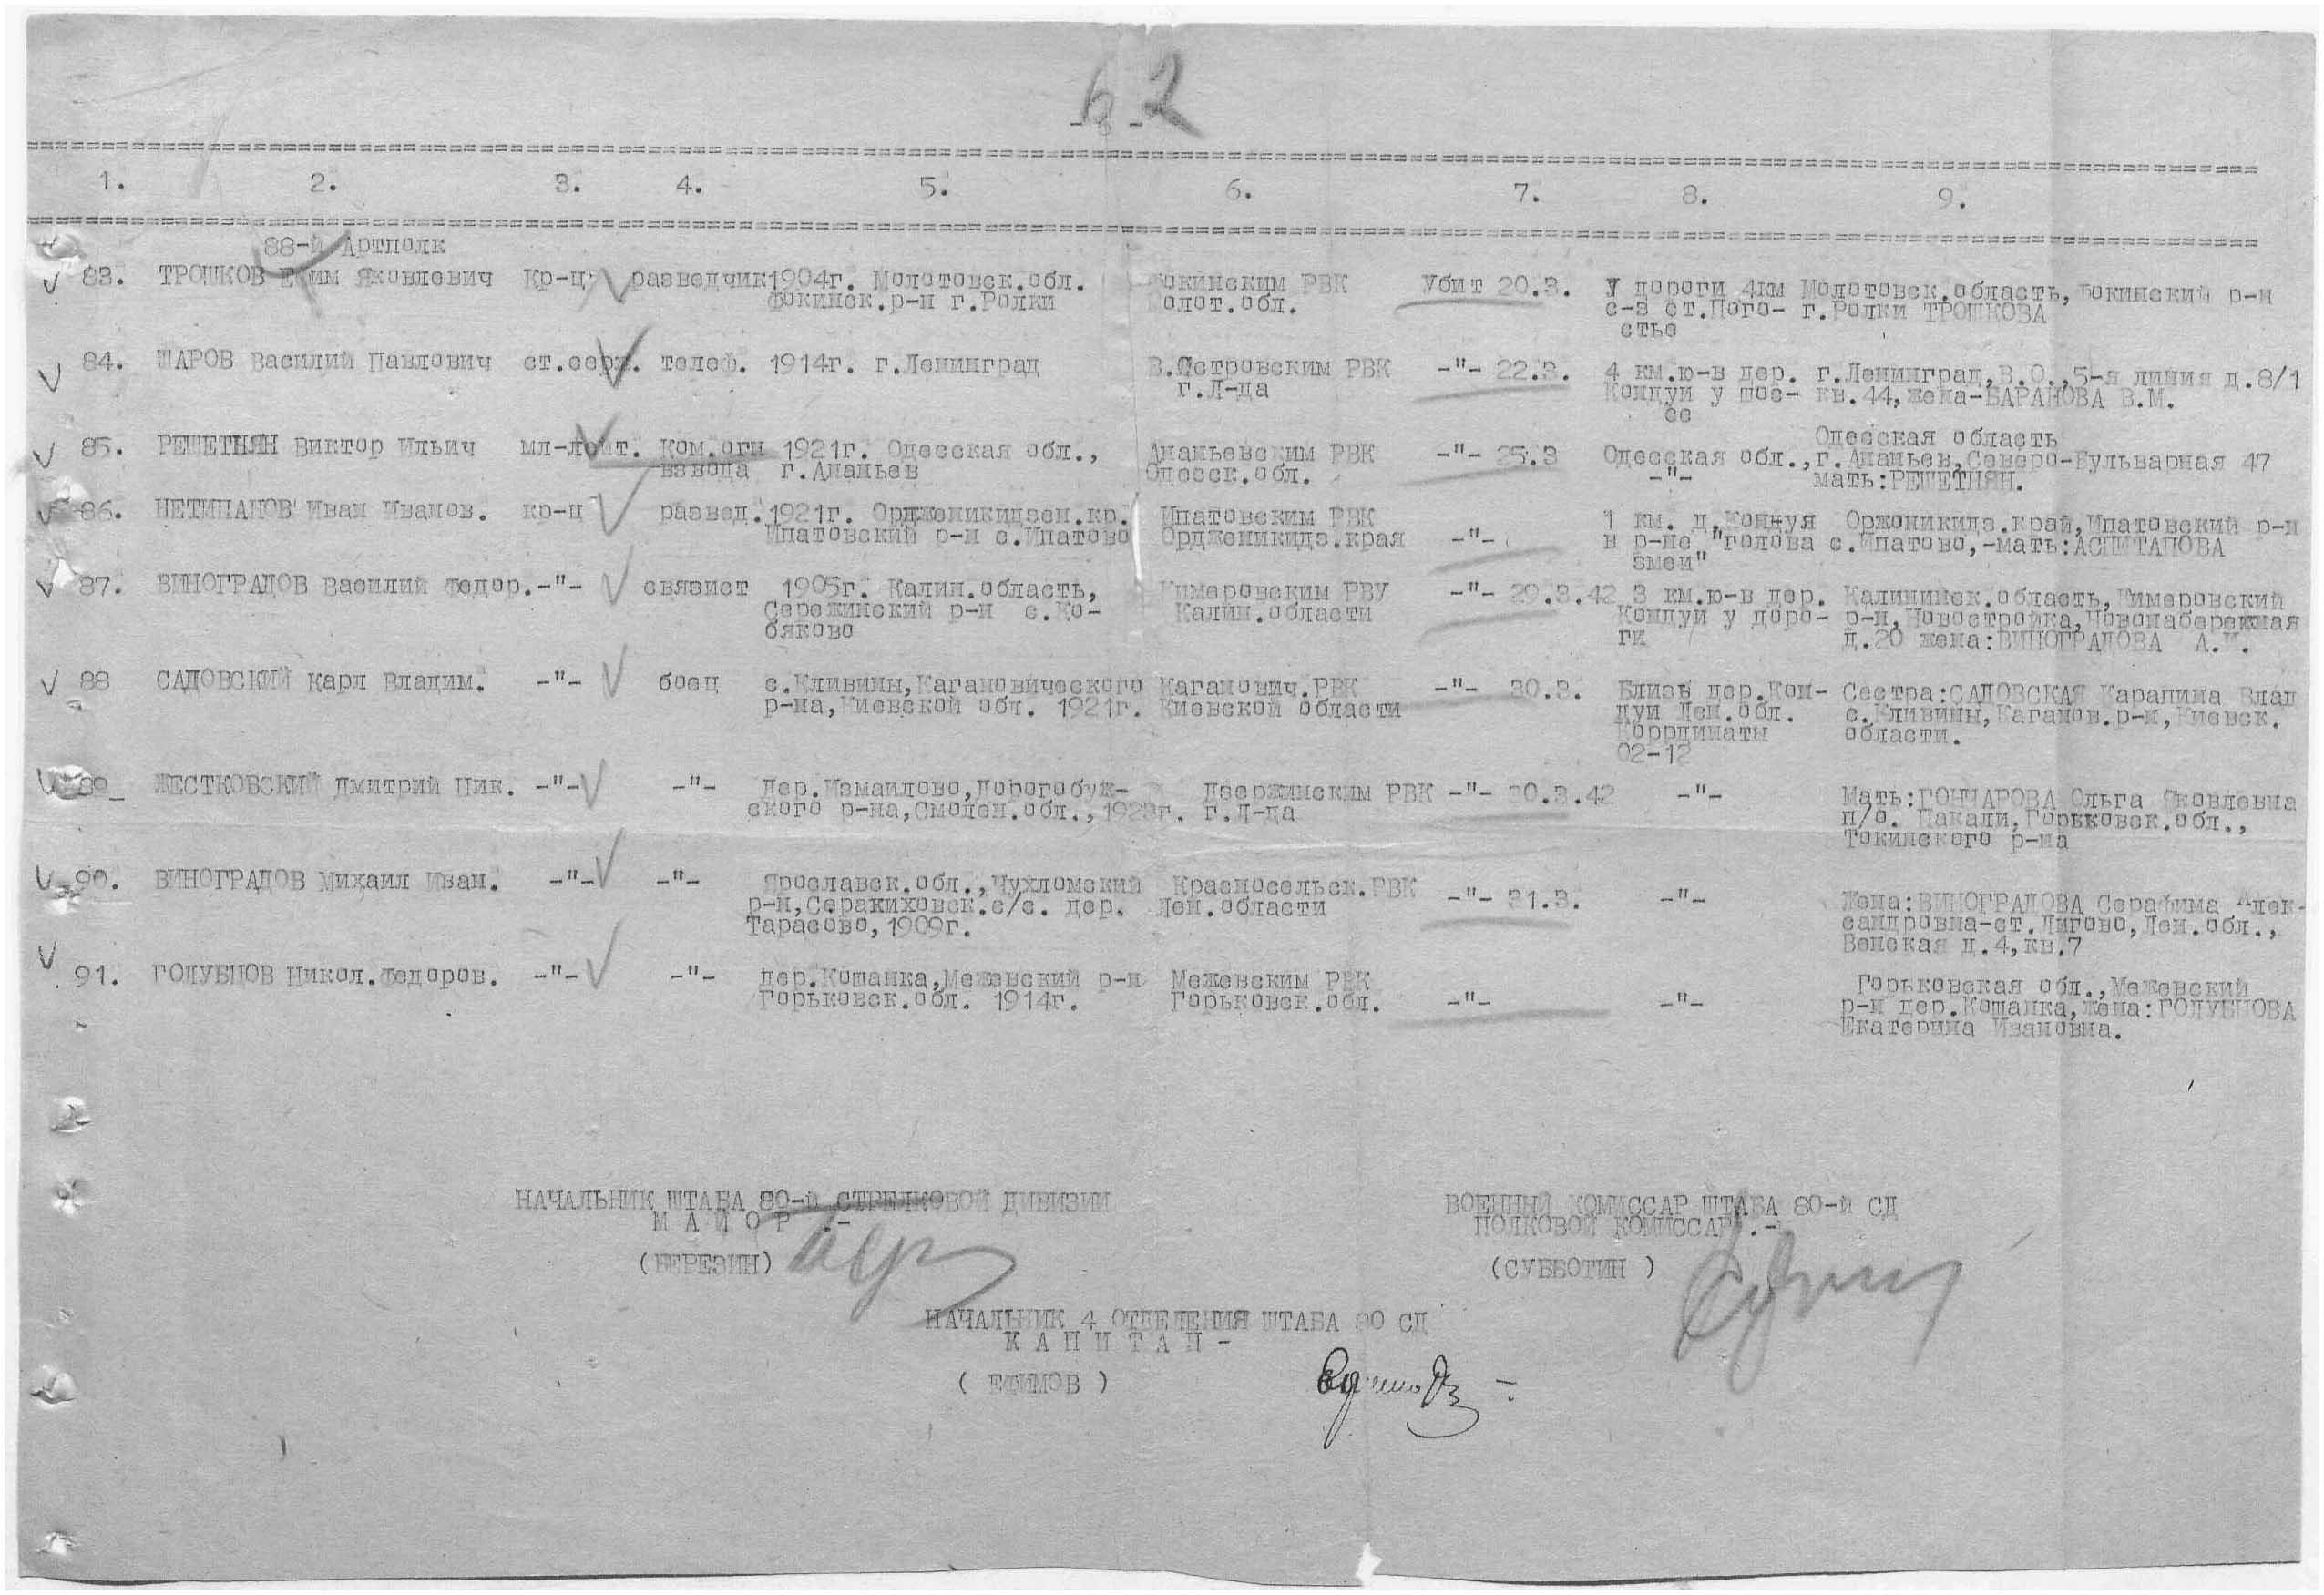 62
- 8 -
1. 2. 3. 4. 5. 6. 7. 8. 9.
88-й Артполк
83. ТРОШКОВ Ефим Яковлевич Кр-ц разведчик 1904г. Молотовск.обл. Фокинским РВК Убит 20.3. У дороги 4км Молотовск.область, Фокинский р-н
Фокинск.р-н г.Ролки Молот.обл. с-з ст.Пого- г.Ролки ТРОШКОВА
стье
84. ШАРОВ Василий Павлович ст.серж. телеф. 1914г. г.Ленинград В.Островским РВК -"- 22.3. 4 км.ю-в дер. г.Ленинград,В.О.,5-я линия д.8/1
г.Л-да Кондуи у шос- кв.44,жена-БАРАНОВА В.М.
се
Одесская область
85. РЕШЕТНЯН Виктор Ильич мл-лейт. Ком.огн 1921г. Одесская обл., Ананьевским РВК -"- 25.3 Одесская обл., г.Ананьев,Северо-Бульварная 47
взвода г.Ананьев Одесск.обл. -"- мать:РЕШЕТНЯН.
86. НЕТИПАНОВ Иван Иванов. кр-ц развед. 1921г. Орджоникидзен.кр. Ипатовским РВК 1 км. д.Кондуя Оржоникидз.край,Ипатовский р-н
Ипатовский р-н с.Ипатово Ордженикидз.края -"- в р-не "голова с.Ипатово,-мать:АСПИТАПОВА
змеи"
87. ВИНОГРАДОВ Василий Федор. -"- связист 1905г. Калин.область, Кимеровским РВУ -"- 29.3.42 3 км.ю-в дер. Калининск.область,Кимеровский
Сережинский р-н с.Ко- Калин.области Кондуи у доро- р-н,Новостройка,Новонабережная
бяково ги д.20 жена:ВИНОГРАДОВА А.И.
88 САДОВСКИЙ Карл Владим. -"- боец с.Кливины,Кагановического Каганович.РВК -"- 30.3. Близь дер.Кон- Сестра:САДОВСКАЯ Карапина Влад
р-на,Киевской обл. 1921г. Киевской области дуи Лен.обл. с.Кливины,Каганов.р-н,Киевск.
Координаты области.
02-12
89_ ЖЕСТКОВСКИЙ Дмитрий Ник. -"- -"- Дер.Измаилово,Дорогобуж- Дзержинским РВК -"- 30.3.42 -"- Мать:ГОНЧАРОВА Ольга Яковлевна
ского р-на,Смолен.обл., г. г.Л-да п/о. Пакали,Горьковск.обл.,
Токинского р-на
90. ВИНОГРАДОВ Михаил Иван. -"- -"- Ярославск.обл.,Чухломский Красносельск.РВК -"- 31.3. -"- Жена:ВИНОГРАДОВА Серафима Алек-
р-н,Серакиховск.с/с. дер. Лен.области сандровна-ст.Лигово,Лен.обл.,
Тарасово,1909г. Венская д.4,кв.7
91. ГОЛУБЦОВ Никол.Федоров. -"- -"- дер.Кошанка,Межевский р-н Межевским РВК Горьковская обл.,Межевский
Горьковск.обл. 1914г. Горьковск.обл. -"- -"- р-н дер.Кошанка,жена:ГОЛУБЦОВА
Екатерина Ивановна.
НАЧАЛЬНИК ШТАБА 80-й СТРЕЛКОВОЙ ДИВИЗИИ ВОЕННЫЙ КОМИССАР ШТАБА 80-й СД
МАЙОР .- ПОЛКОВОЙ КОМИССАР .-
(БЕРЕЗИН) (СУББОТИН )
НАЧАЛЬНИК 4 ОТДЕЛЕНИЯ ШТАБА 80 СД
КАПИТАН -
( ЕФИМОВ )